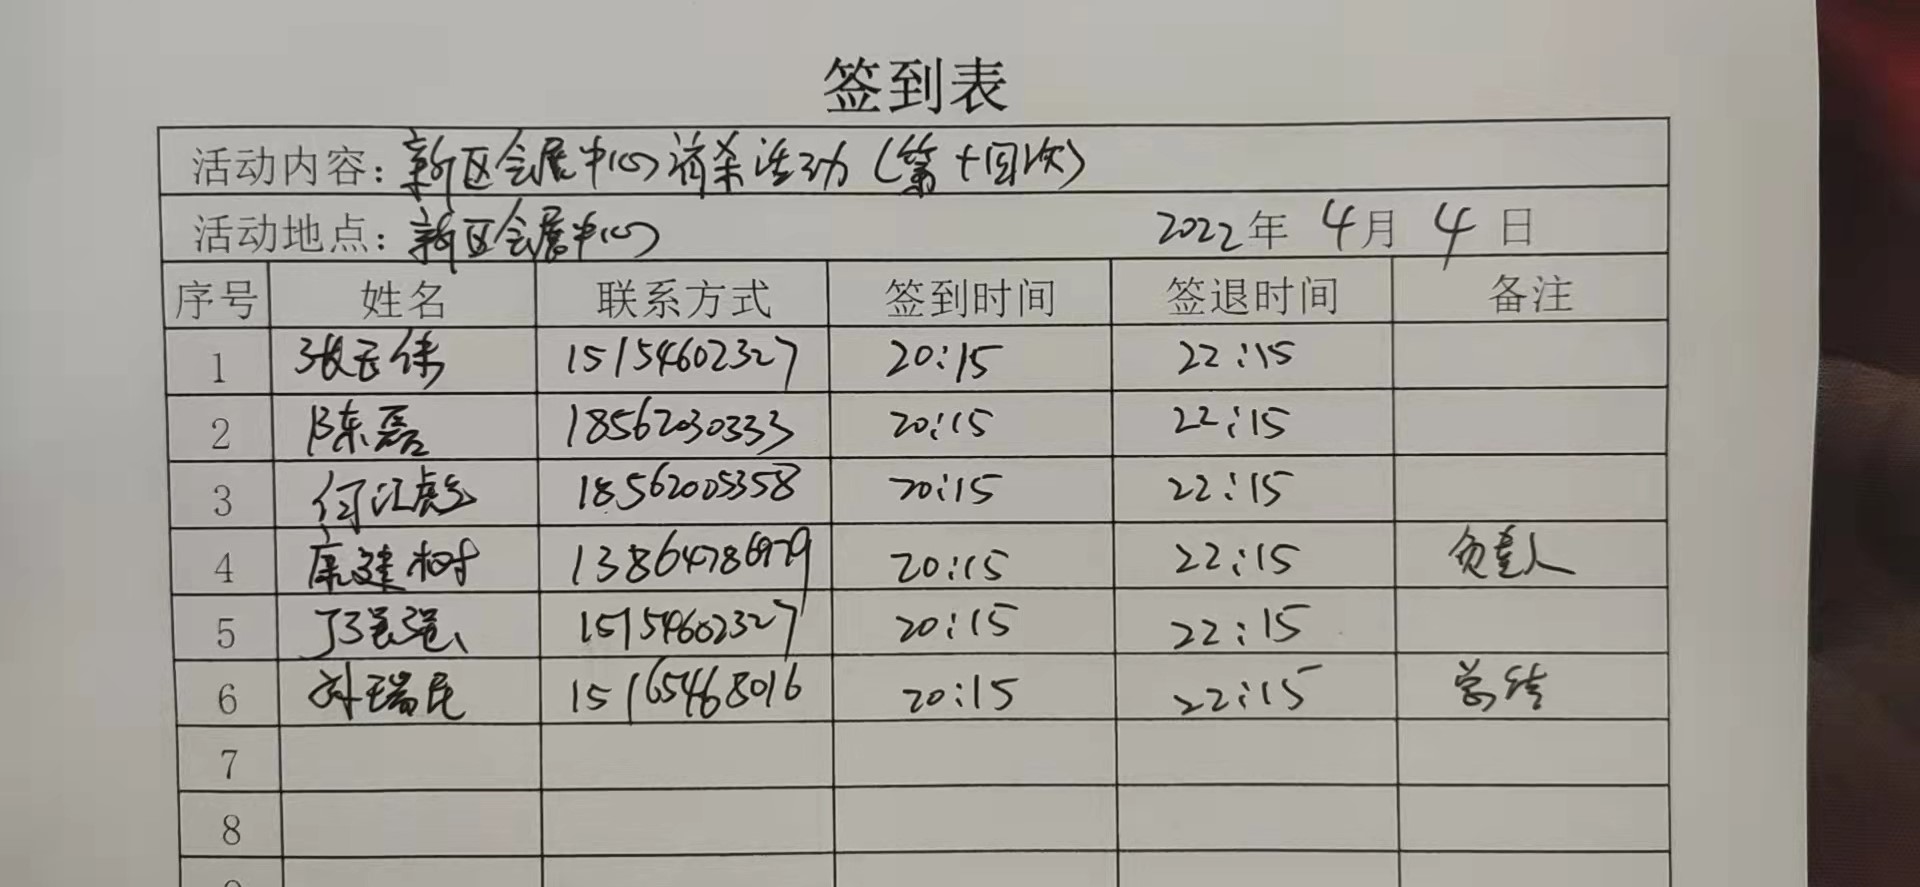 签到表
活动内容：新区会展中心消杀活动（第十四次）
活动地点：新区会展中心 2022年 4月 4日
序号 姓名 联系方式 签到时间 签退时间 备注
1 张玉伟 15154602327 20:15 22:15
2 陈磊 18562030333 20:15 22:15
3 何江彪 18562005358 20:15 22:15
4 康建树 13864786979 20:15 22:15 负责人
5 丁强强 15154602327 20:15 22:15
6 孙瑞民 15165468016 20:15 22:15 总结
7
8